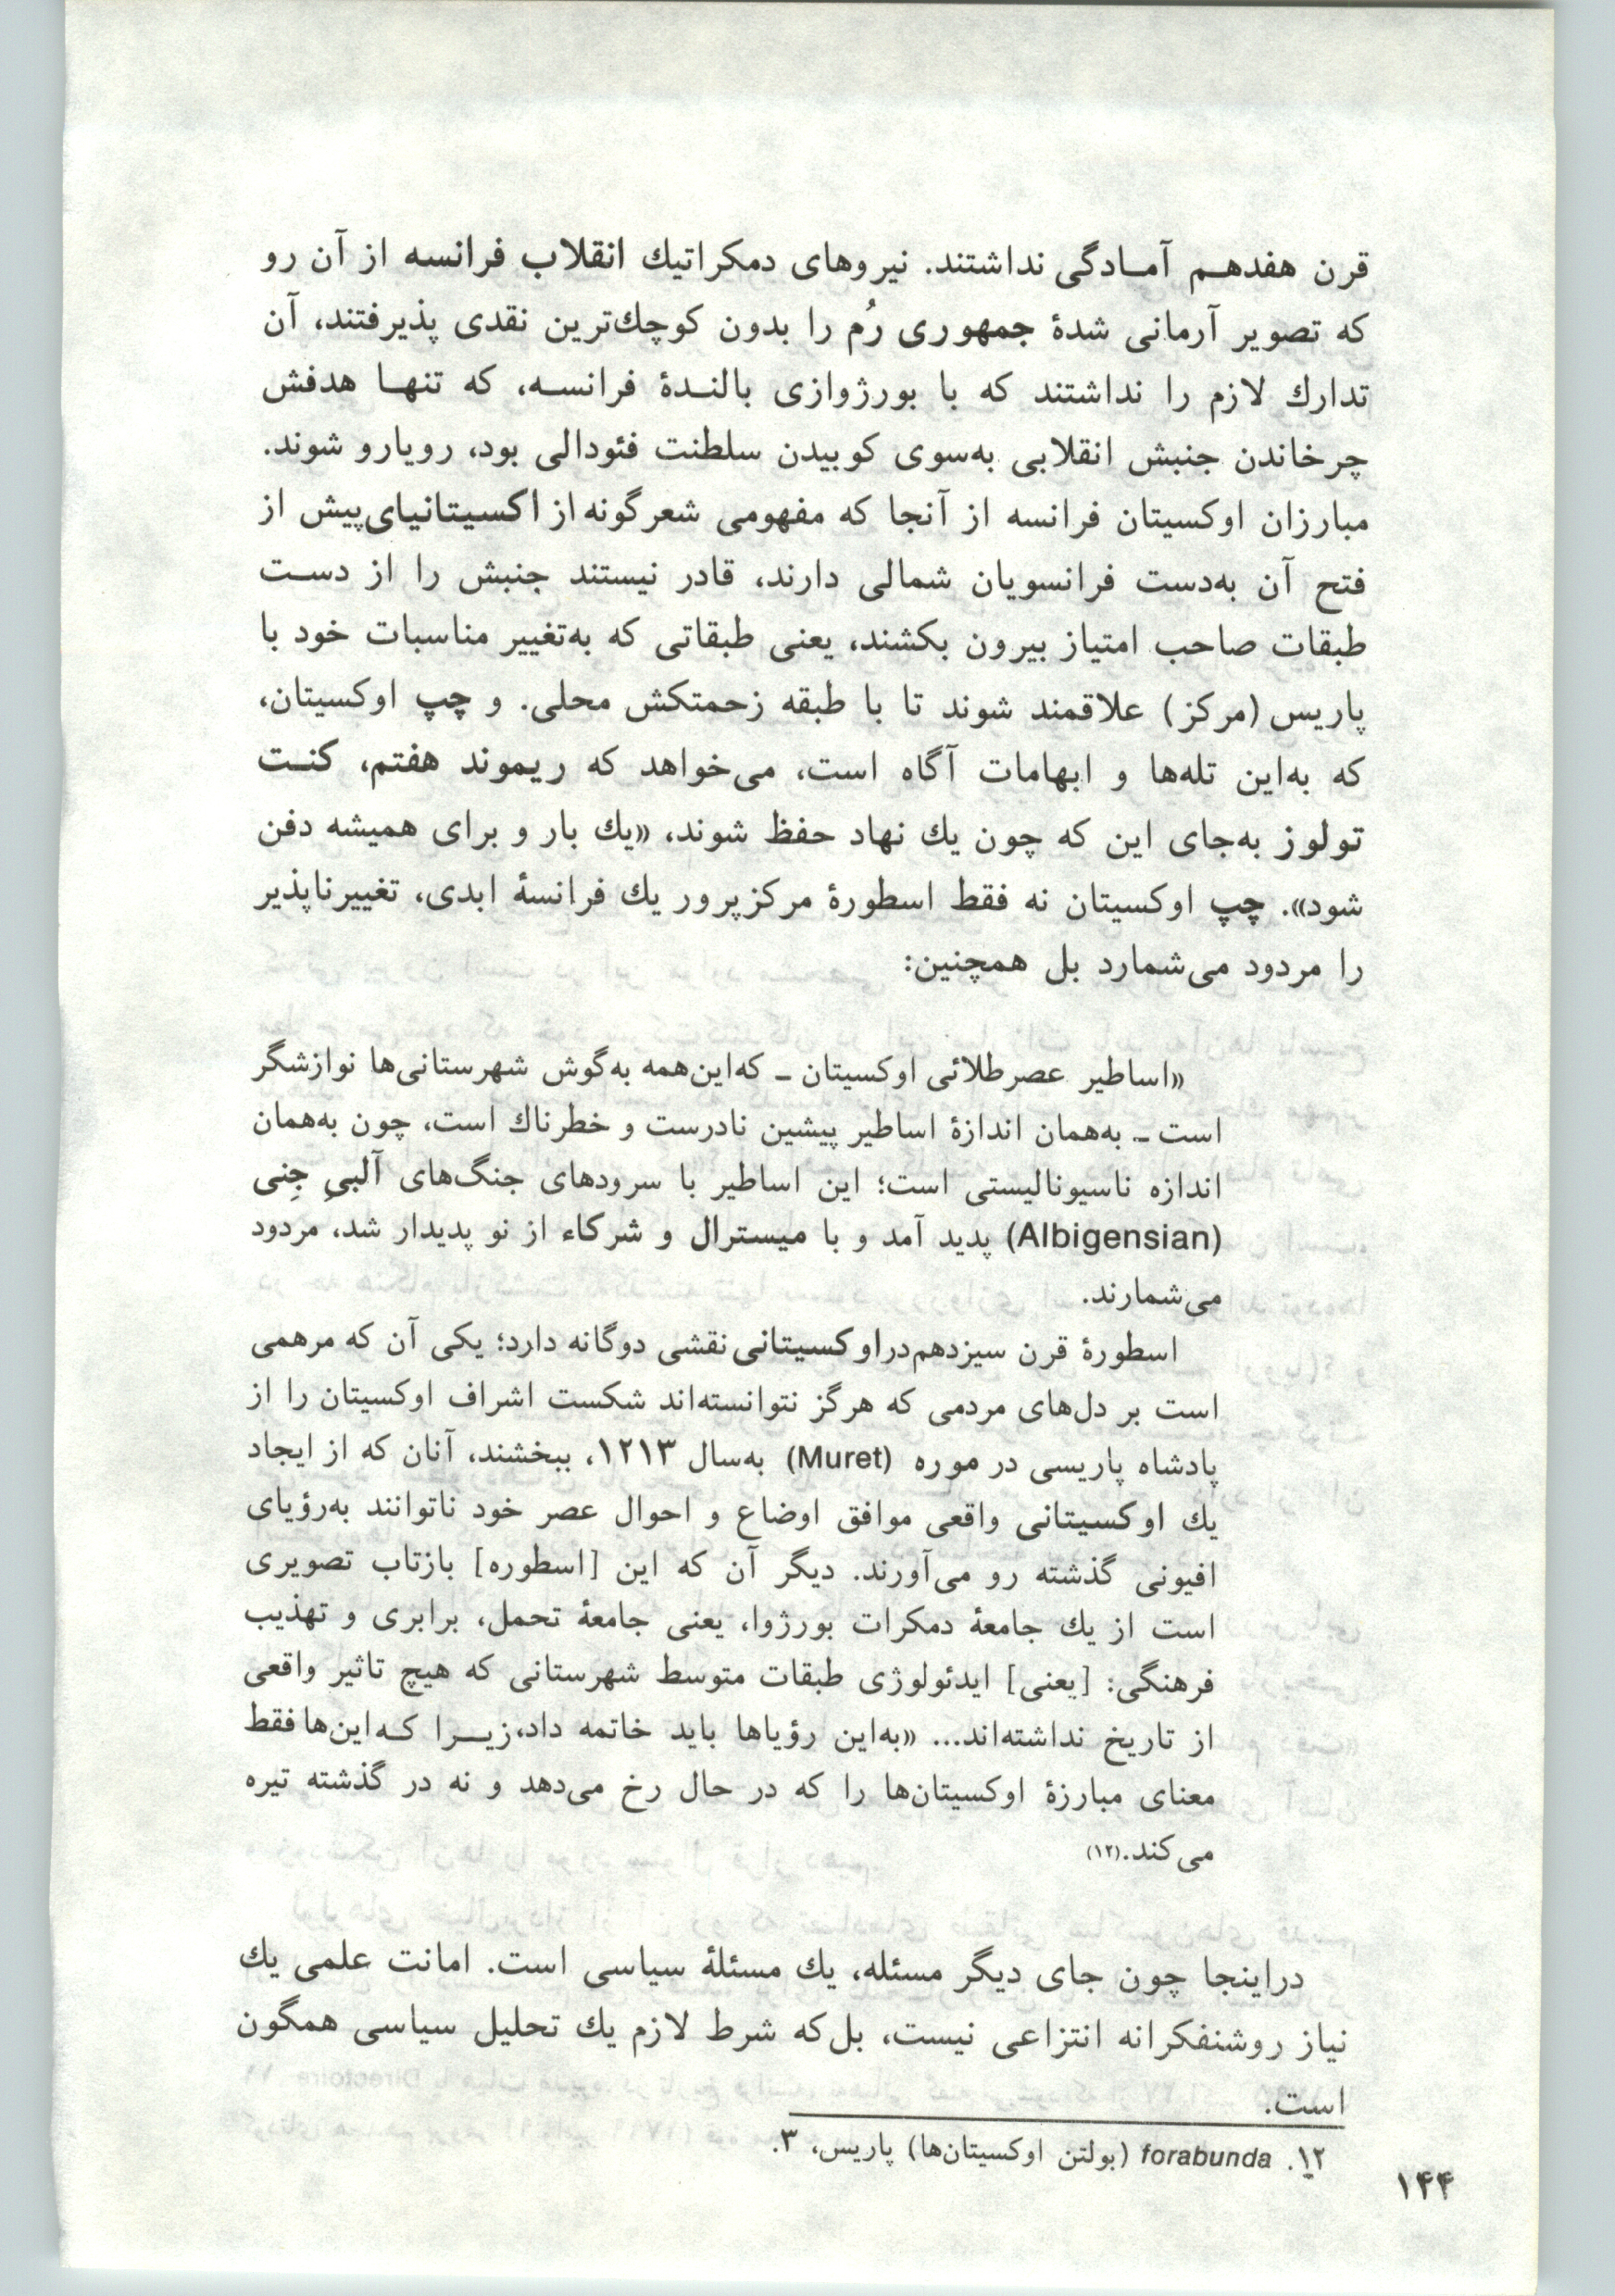 قرن هفدهم آمادگی نداشتند. نیروهای دمکراتیك انقلاب فرانسه از آن رو
که تصویر آرمانی شدهٔ جمهوری رُم را بدون کوچك‌ترین نقدی پذیرفتند، آن
تدارك لازم را نداشتند که با بورژوازی بالندهٔ فرانسه، که تنها هدفش
چرخاندن جنبش انقلابی به‌سوی کوبیدن سلطنت فئودالی بود، رویارو شوند.
مبارزان اوکسیتان فرانسه از آنجا که مفهومی شعرگونه از اکسیتانیای پیش از
فتح آن به‌دست فرانسویان شمالی دارند، قادر نیستند جنبش را از دست
طبقات صاحب امتیاز بیرون بکشند، یعنی طبقاتی که به‌تغییر مناسبات خود با
پاریس (مرکز) علاقمند شوند تا با طبقه زحمتکش محلی. و چپ اوکسیتان،
که به‌این تله‌ها و ابهامات آگاه است، می‌خواهد که ریموند هفتم، کنت
تولوز به‌جای این که چون یك نهاد حفظ شوند، «یك بار و برای همیشه دفن
شود». چپ اوکسیتان نه فقط اسطورهٔ مرکزپرور یك فرانسهٔ ابدی، تغییرناپذیر
را مردود می‌شمارد بل همچنین:
«اساطیر عصرطلائی اوکسیتان ـ که‌این‌همه به‌گوش شهرستانی‌ها نوازشگر
است ـ به‌همان اندازهٔ اساطیر پیشین نادرست و خطرناك است، چون به‌همان
اندازه ناسیونالیستی است؛ این اساطیر با سرودهای جنگ‌های آلبیِ جِنی
(Albigensian) پدید آمد و با میسترال و شرکاء از نو پدیدار شد، مردود
می‌شمارند.
اسطورهٔ قرن سیزدهم در اوکسیتانی نقشی دوگانه دارد؛ یکی آن که مرهمی
است بر دل‌های مردمی که هرگز نتوانسته‌اند شکست اشراف اوکسیتان را از
پادشاه پاریسی در موره (Muret) به‌سال ۱۲۱۳، ببخشند، آنان که از ایجاد
یك اوکسیتانی واقعی موافق اوضاع و احوال عصر خود ناتوانند به‌رؤیای
افیونی گذشته رو می‌آورند. دیگر آن که این [اسطوره] بازتاب تصویری
است از یك جامعهٔ دمکرات بورژوا، یعنی جامعهٔ تحمل، برابری و تهذیب
فرهنگی: [یعنی] ایدئولوژی طبقات متوسط شهرستانی که هیچ تاثیر واقعی
از تاریخ نداشته‌اند... «به‌این رؤیاها باید خاتمه داد، زیرا که‌این‌ها فقط
معنای مبارزهٔ اوکسیتان‌ها را که در حال رخ می‌دهد و نه در گذشته تیره
می‌کند.(۱۲)
دراینجا چون جای دیگر مسئله، یك مسئلهٔ سیاسی است. امانت علمی یك
نیاز روشنفکرانه انتزاعی نیست، بل‌که شرط لازم یك تحلیل سیاسی همگون
است.
۱۲. forabunda (بولتن اوکسیتان‌ها) پاریس، ۳.
۱۴۴